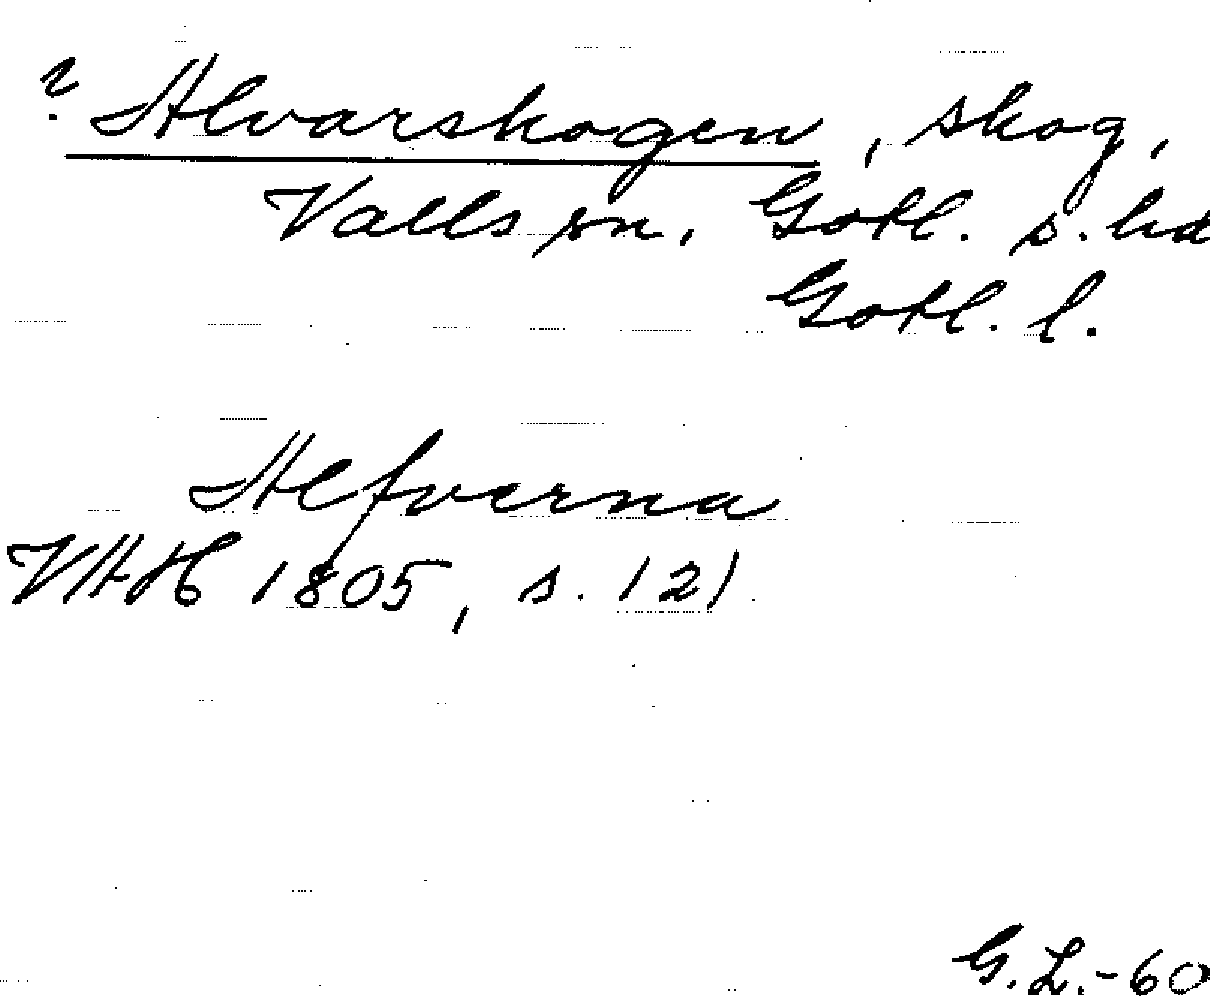 ? Alvarskogen, skog,
Valls sn. Gotl. s. hd
Gotl. l.
Alfverna
VHAH 1805, s. 121
G. L. - 60